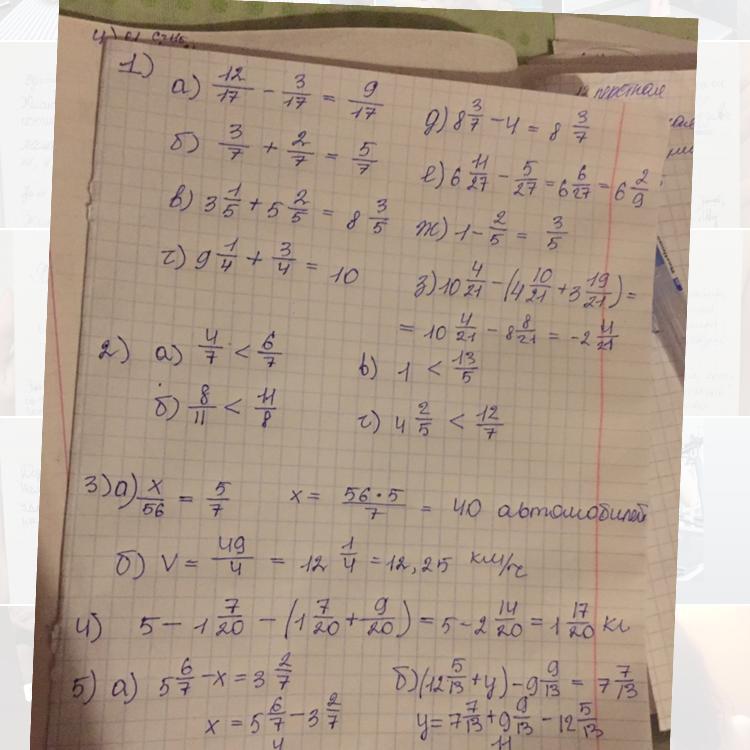 1)
а) 12/17 - 3/17 = 9/17
б) 3/7 + 2/7 = 5/7
в) 3 1/5 + 5 2/5 = 8 3/5
г) 9 1/4 + 3/4 = 10
д) 8 3/7 - 4 = 8 3/7
е) 6 11/27 - 5/27 = 6 6/27 = 6 2/9
ж) 1 - 2/5 = 3/5
з) 10 4/21 - (4 10/21 + 3 19/21) =
= 10 4/21 - 8 8/21 = -2 4/21
2) а) 4/7 < 6/7
б) 8/11 < 11/8
в) 1 < 13/5
г) 4 2/5 < 12/7
3) а) x/56 = 5/7 x = 56·5/7 = 40 автомобилей
б) V = 49/4 = 12 1/4 = 12,25 км/ч
4) 5 - 1 7/20 - (1 7/20 + 9/20) = 5 - 2 14/20 = 1 17/20 кг
5) а) 5 6/7 - x = 3 2/7
x = 5 6/7 - 3 2/7
б) (12 5/13 + y) - 9 9/13 = 7 7/13
y = 7 7/13 + 9 9/13 - 12 5/13